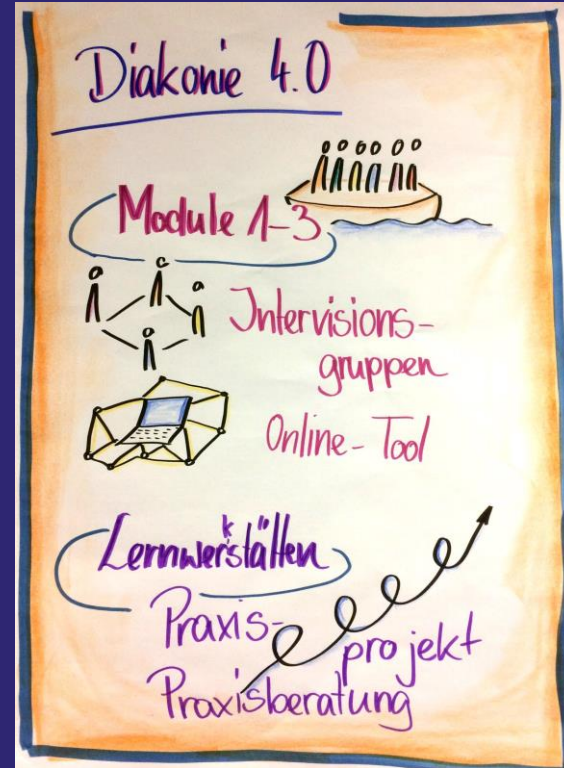 Diakonie 4.0
Module 1-3
Intervisions-
gruppen
Online-Tool
Lernwerkstätten
Praxis-
projekt
Praxisberatung